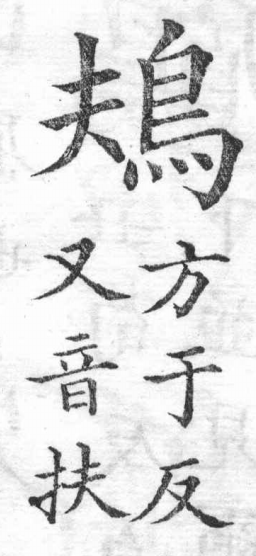 鳺
方于反
又音扶